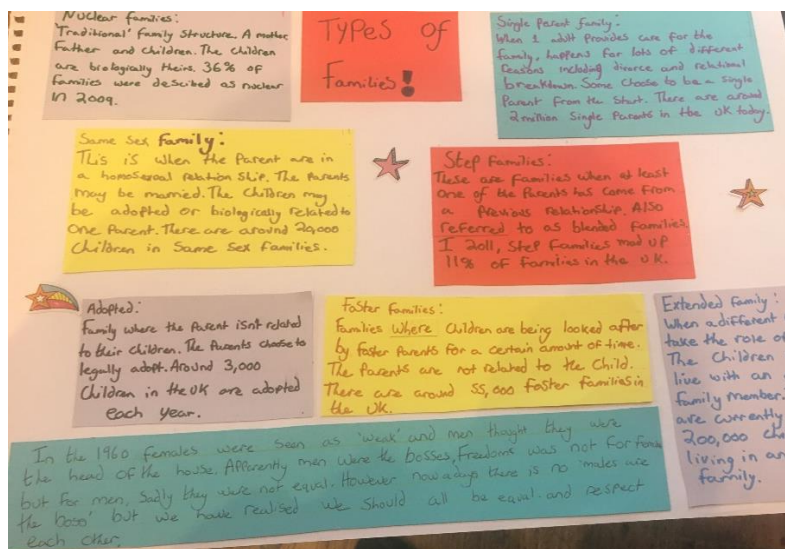 Nuclear families:
'Traditional' family structure. A mother,
Father and children. The children
are biologically theirs. 36% of
families were described as nuclear
in 2009.
TYPES of
Families!
Single Parent family:
When 1 adult provides care for the
family, happens for lots of different
reasons including divorce and relational
breakdown. Some choose to be a single
Parent from the start. There are around
2 million Single Parents in the UK today.
Same Sex Family:
This is when the Parent are in
a homosexual relation ship. The Parents
may be married. The Children may
be adopted or biologically related to
one Parent. There are around 20,000
Children in Same Sex families.
Step Families:
These are families when at least
one of the Parents has come from
a Previous relationship. Also
referred to as blended families.
I 2011, Step Families mad up
11% of families in the UK.
Adopted:
Family where the Parent isn't related
to their children. The Parents choose to
legally adopt. Around 3,000
Children in the UK are adopted
each year.
Foster Families:
Families Where Children are being looked after
by foster Parents for a certain amount of time.
The Parents are not related to the Child.
There are around 55,000 foster families in
the UK.
Extended Family:
When a different
take the role of
The Children
live with an
family member.
are currently
200,000
living in an
family.
In the 1960 females were seen as 'weak' and men thought they were
the head of the house. Apparently men were the bosses, freedome was not for
but for men, Sadly they were not equal. However nowadays there is no 'males are
the boss' but we have realised we should all be equal and respect
each other.